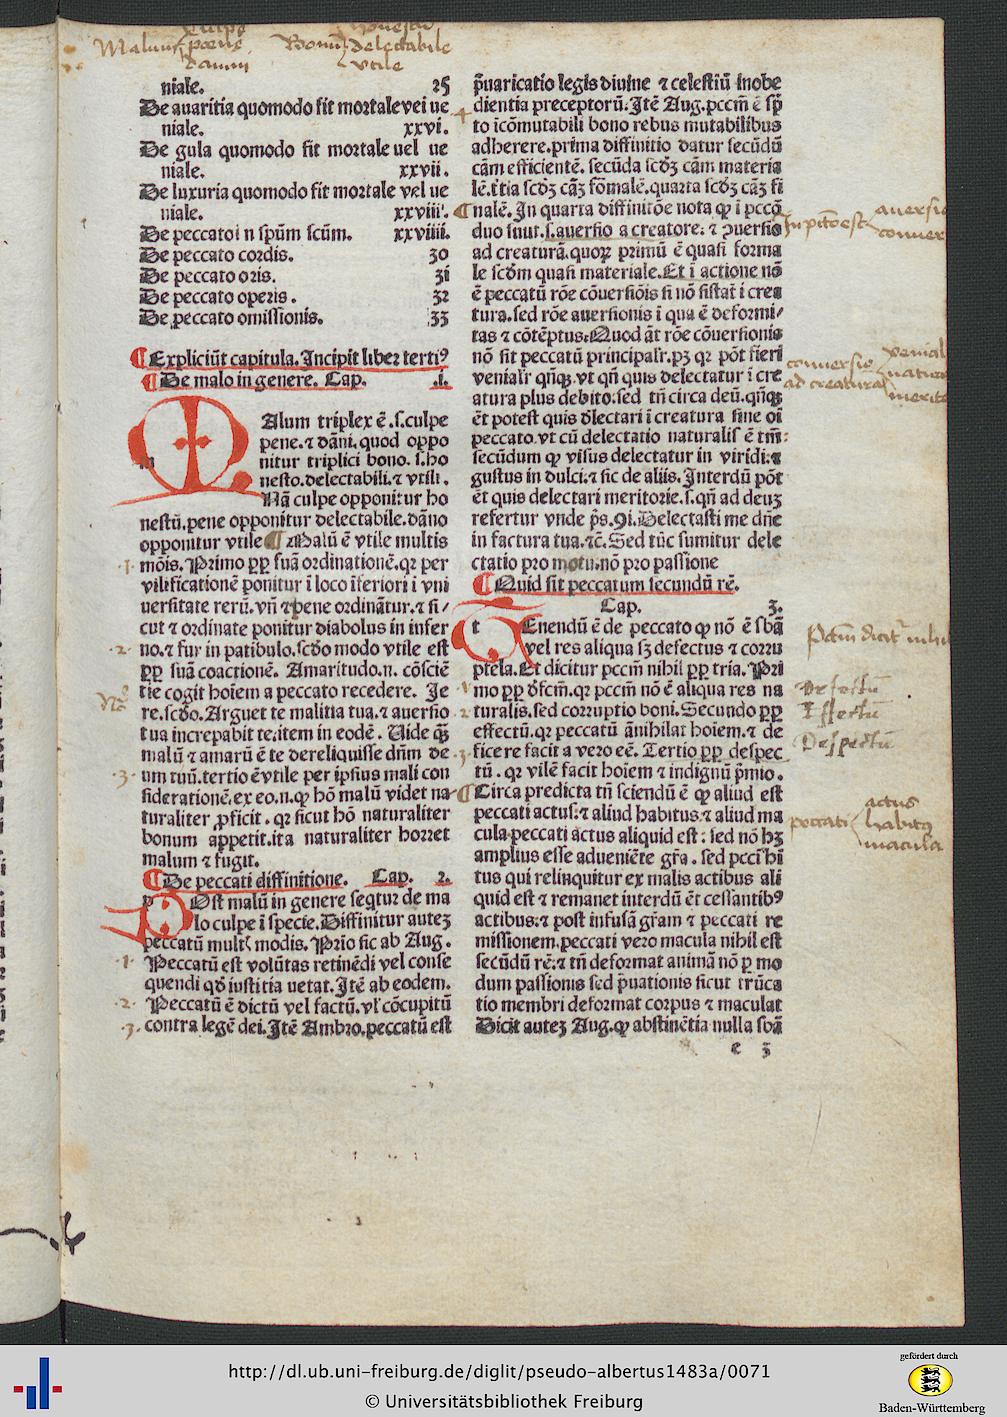 Malum culpe
poene
damni
Bonum honestum
delectabile
vtile
niale. 25
De auaritia quomodo sit mortale vel ue
niale. xxvi.
De gula quomodo sit mortale uel ue
niale. xxvii.
De luxuria quomodo sit mortale vel ue
niale. xxviii.
De peccatoi n spūm scūm. xxviiii.
De peccato cordis. 30
De peccato oris. 31
De peccato operis. 32
De peccato omissionis. 33
¶ Expliciūt capitula. Incipit liber terti9
¶ De malo in genere. Cap. .i.
Alum triplex ē .s. culpe
pene. ⁊ dāni. quod oppo
nitur triplici bono. s. ho
nesto. delectabili. ⁊ vtili.
Nā culpe opponitur ho
nestū. pene opponitur delectabile. dāno
opponitur vtile ¶ Malū ē vtile multis
·1· mōis. Primo ꝓp suā ordinationē. qr per
vilificationē ponitur ī loco īferiori ī vni
uersitate rerū. vñ ⁊ pene ordināтur. ⁊ si/
cut ⁊ ordinate ponitur diabolus in infer
·2· no. ⁊ fur in patibulo. scđo modo vtile est
ꝓp suā coactionē. Amaritudo. n. cōsciē
tie cogit hoīem a peccato recedere. Je
re. scđo. Arguet te malitia tua. ⁊ auersio
tua increpabit te. item in eodē. Uide qꝫ
malū ⁊ amarū ē te dereliquisse dñm de
·3· um tuū. tertio ē vtile per ipsius mali con
siderationē. ex eo. n. ꝙ hō malū videt na
turaliter ꝓficit. qr sicut hō naturaliter
bonum appetit. ita naturaliter horret
malum ⁊ fugit.
¶ De peccati diffinitione. Cap. 2.
p Ost malū in genere seqtur de ma
lo culpe ī specie. Diffinitur auteꝫ
peccatū mult modis. Prīo sic ab Aug.
·1· Peccatū est volūtas retinēdi vel conse
quendi qđ iustitia uetat. Itē ab eodem.
·2· Peccatū ē dictū vel factū. vl' cōcupitū
·3· contra legē dei. Itē Ambro. peccatū est
p̄uaricatio legis diuine ⁊ celestiū inobe
dientia preceptorū. Itē Aug. pccm̄ ē sp̄
·4· to icōmutabili bono rebus mutabilibus
adherere. prima diffinitio datur secūdū
cām efficientē. secūda scđꝫ cām materia
lē. t'tia scđꝫ cāꝫ fōmalē. quarta scđꝫ cāꝫ fi
¶ nalē. In quarta diffinitōe nota ꝙ ī pccō
duo sunt. s. auersio a creatore: ⁊ ɔuersio
ad creaturā. quoꝝ primū ē quasi forma
le scđm quasi materiale. Et ī actione nō
ē peccatū rōe cōuersiōis si nō sistat ī crea
tura. sed rōe auersionis ī qua ē deformi/
tas ⁊ cōtēptus. Quod āt rōe cōuersionis
nō sit peccatū principalr. pꝫ qr pōt fieri
venialr qñqꝫ. vt qñ quis delectatur ī cre
atura plus debito. sed tñ circa deū. qñqꝫ
ēt potest quis dlectari ī creatura sine oī
peccato. vt cū delectatio naturalis ē tm̄:
secūdum ꝙ visus delectatur in viridi. ⁊
gustus in dulci. ⁊ sic de aliis. Interdū pōt
ēt quis delectari meritorie. s. qñ ad deuꝫ
refertur vnde p̄s. 9i. Delectasti me dñe
in factura tua. ⁊c̄. Sed tūc sumitur dele
ctatio pro motu. nō pro passione
¶ Quid sit peccatum secundū rē.
Cap. 3.
t Enendū ē de peccato ꝙ nō ē sbā
vel res aliqua sꝫ defectus ⁊ corru
ptela. Et dicitur pccm̄ nihil ꝓp tria. Pri
·1· mo ꝓp dfcm̄. qr pccm̄ nō ē aliqua res na
·2· turalis. sed corruptio boni. Secundo ꝓp
effectū. qr peccatū ānihilat hoīem. ⁊ de
·3· ficere facit a vero eē. Tertio ꝓp despec
tū. qr vilē facit hoīem ⁊ indignū p̄mio.
¶ Circa predicta tñ sciendū ē ꝙ aliud est
peccati actus: ⁊ aliud habitus: ⁊ aliud ma
cula. peccati actus aliquid est: sed nō hꝫ
amplius esse adueniēte gr̄a. sed pcci hī
tus qui relinquitur ex malis actibus ali
quid est ⁊ remanet interdū ēt cessantib9
actibus: ⁊ post infusā gr̄am ⁊ peccati re
missionem. peccati vero macula nihil est
secūdū rē: ⁊ tñ deformat animā nō ꝑ mo
dum passionis sed p̄uationis sicut trūca
tio membri deformat corpus ⁊ maculat
Dicit auteꝫ Aug. ꝙ abstinētia nulla sbā
e 3
In pctō est auersio
conuer
conuersio ad creaturā venial
natura
merito
Pctm̄ dicit' nihil
Defectū
Effectū
Despectū
peccati actus
habitus
macula
http://dl.ub.uni-freiburg.de/diglit/pseudo-albertus1483a/0071
© Universitätsbibliothek Freiburg
gefördert durch
Baden-Württemberg